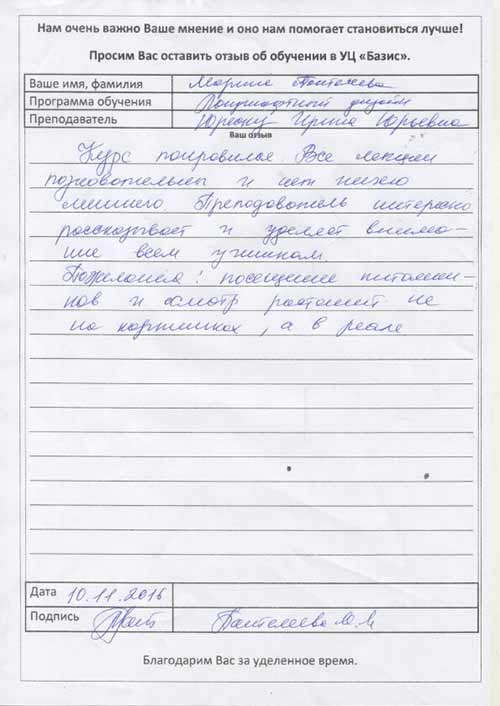 Нам очень важно Ваше мнение и оно нам помогает становиться лучше!
Просим Вас оставить отзыв об обучении в УЦ «Базис».
Ваше имя, фамилия Марина Пантелеева
Программа обучения Ландшафтный дизайн
Преподаватель Ирина Юрьевна
Ваш отзыв
Курс понравился. Все лекции
познавательны и нет ничего
лишнего Преподаватель интересно
рассказывает и уделяет внима-
ние всем ученикам.
Пожелания: посещение питомни-
ков и осмотр растений не
на картинках, а в реале
Дата 10.11.2016
Подпись Пантелеева М.М
Благодарим Вас за уделенное время.